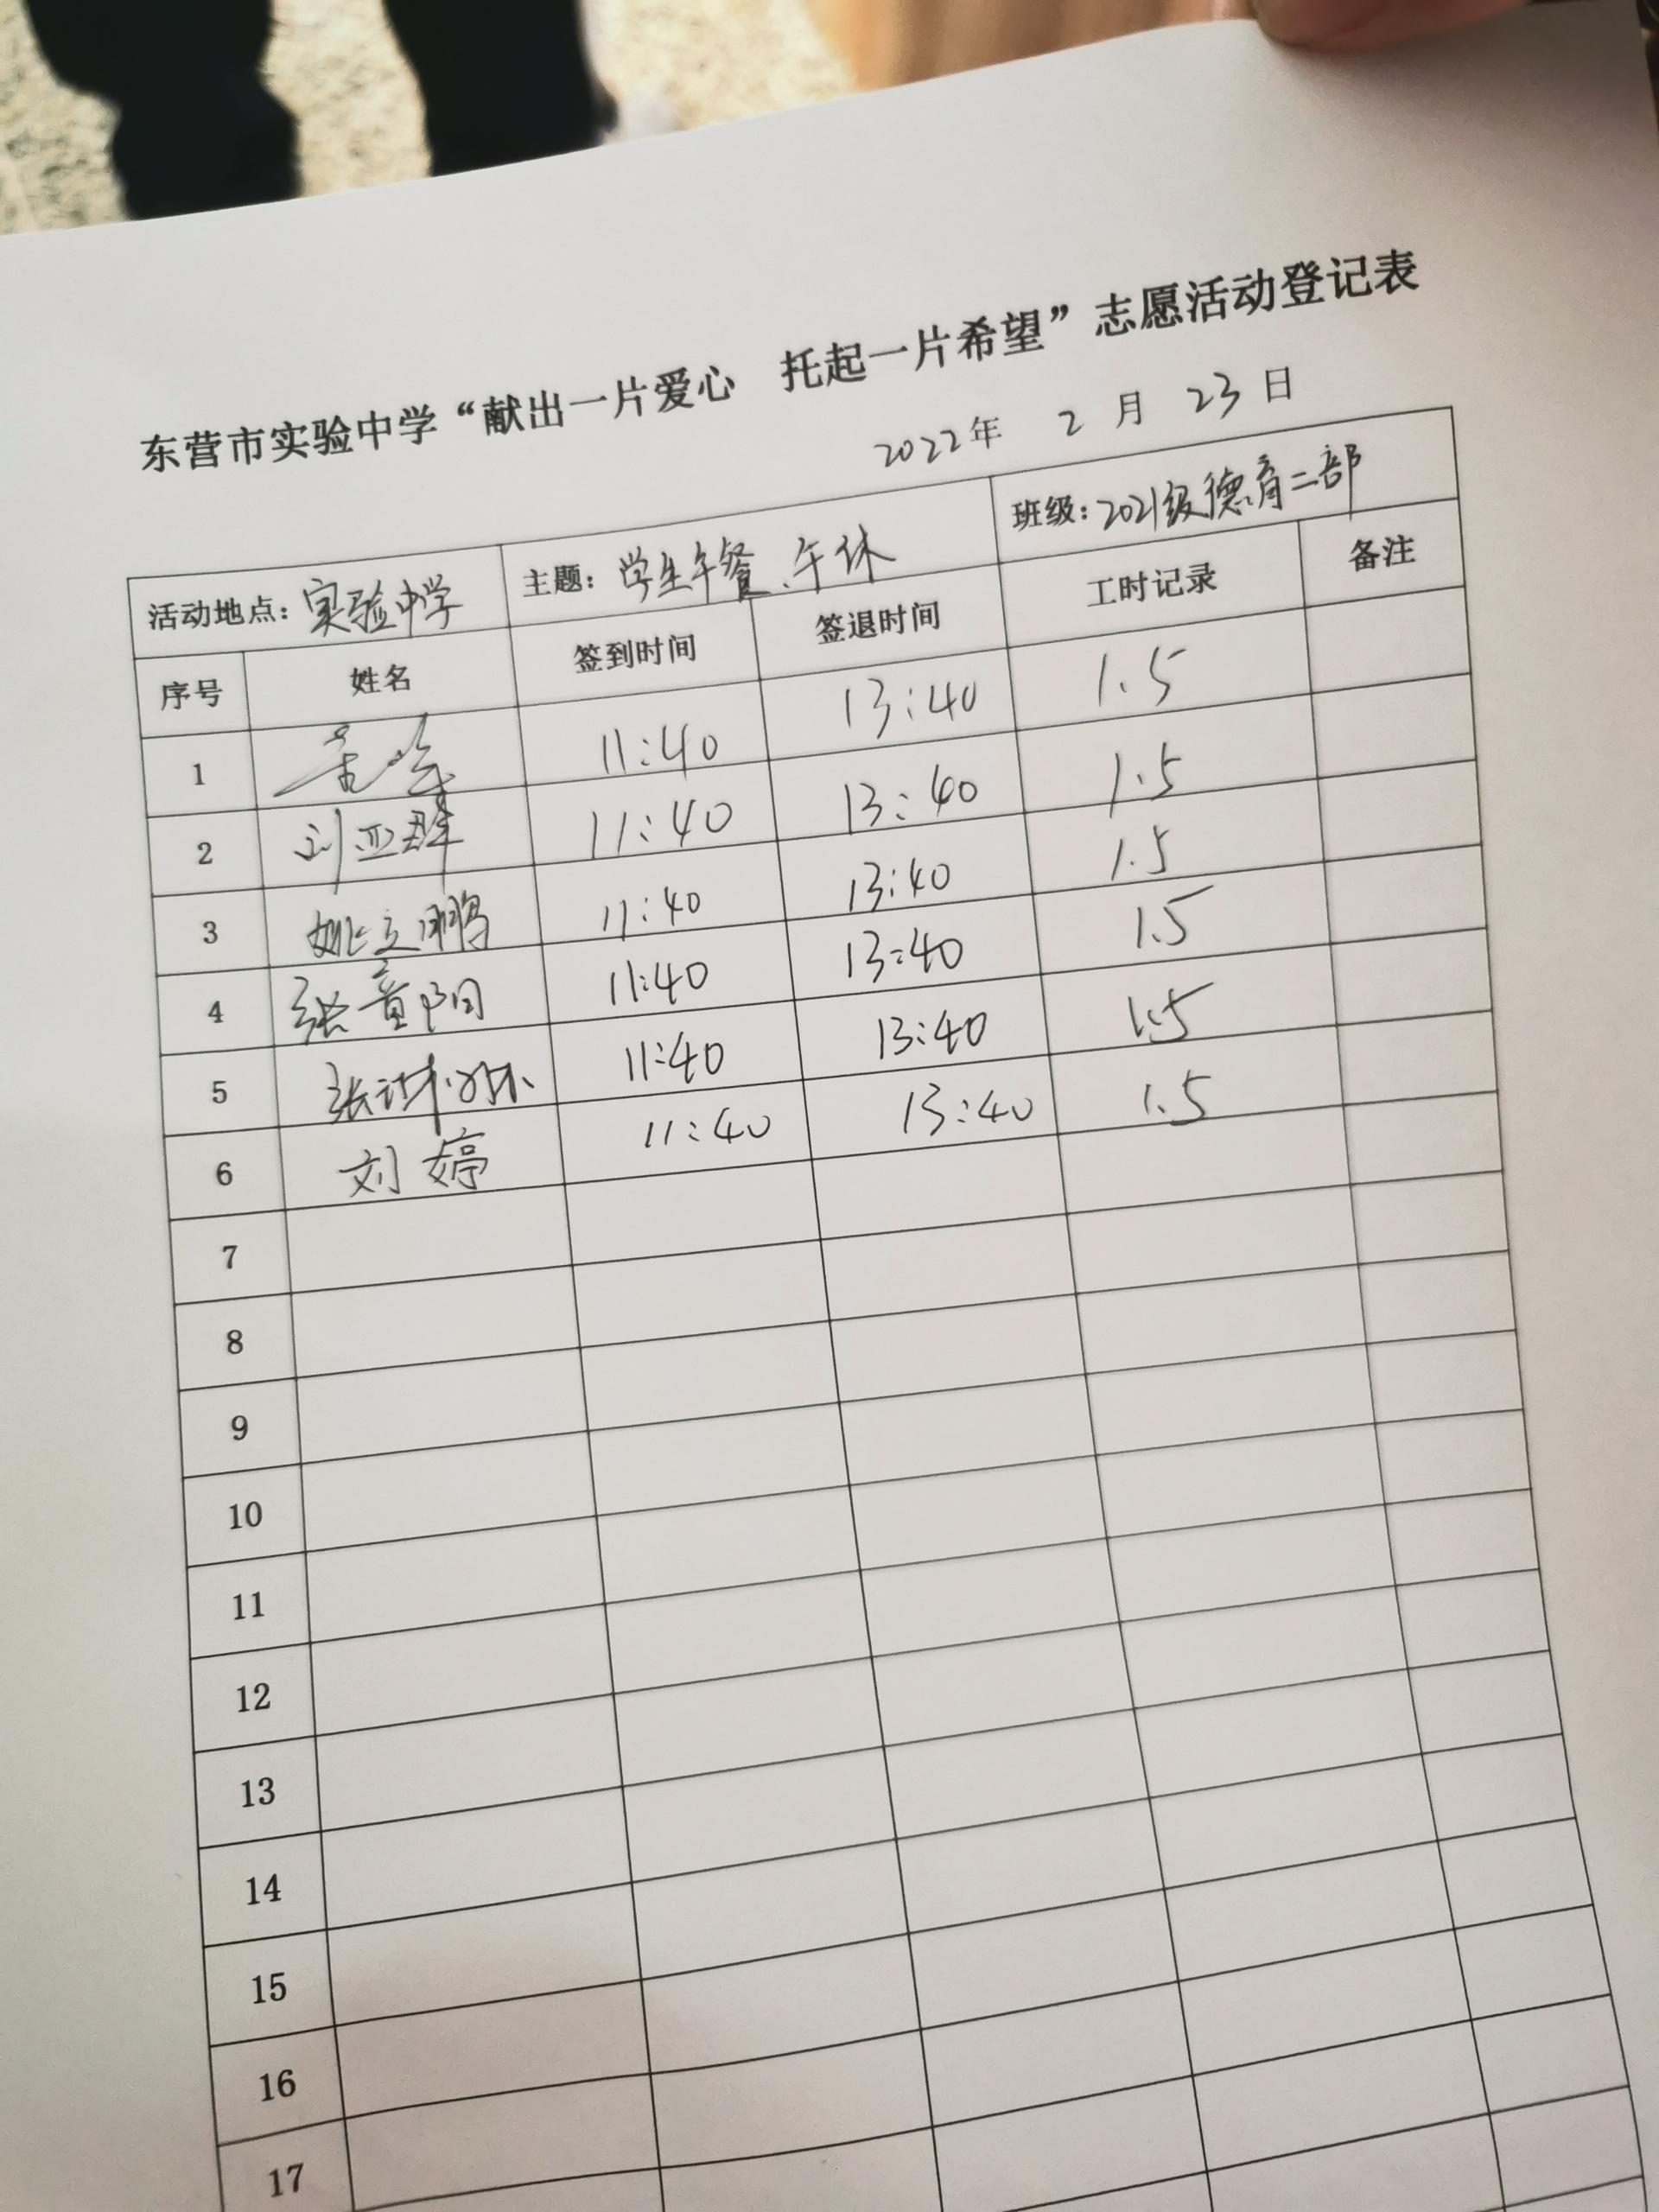 东营市实验中学“献出一片爱心 托起一片希望”志愿活动登记表
2022年 2 月 23 日
活动地点：实验中学 主题：学生午餐、午休 班级：2021级德育二部
序号 姓名 签到时间 签退时间 工时记录 备注
1 11:40 13:40 1.5
2 刘亚群 11:40 13:40 1.5
3 姚立鹏 11:40 13:40 1.5
4 张童阳 11:40 13:40 1.5
5 张 11:40 13:40 1.5
6 刘婷 11:40 13:40 1.5
7
8
9
10
11
12
13
14
15
16
17